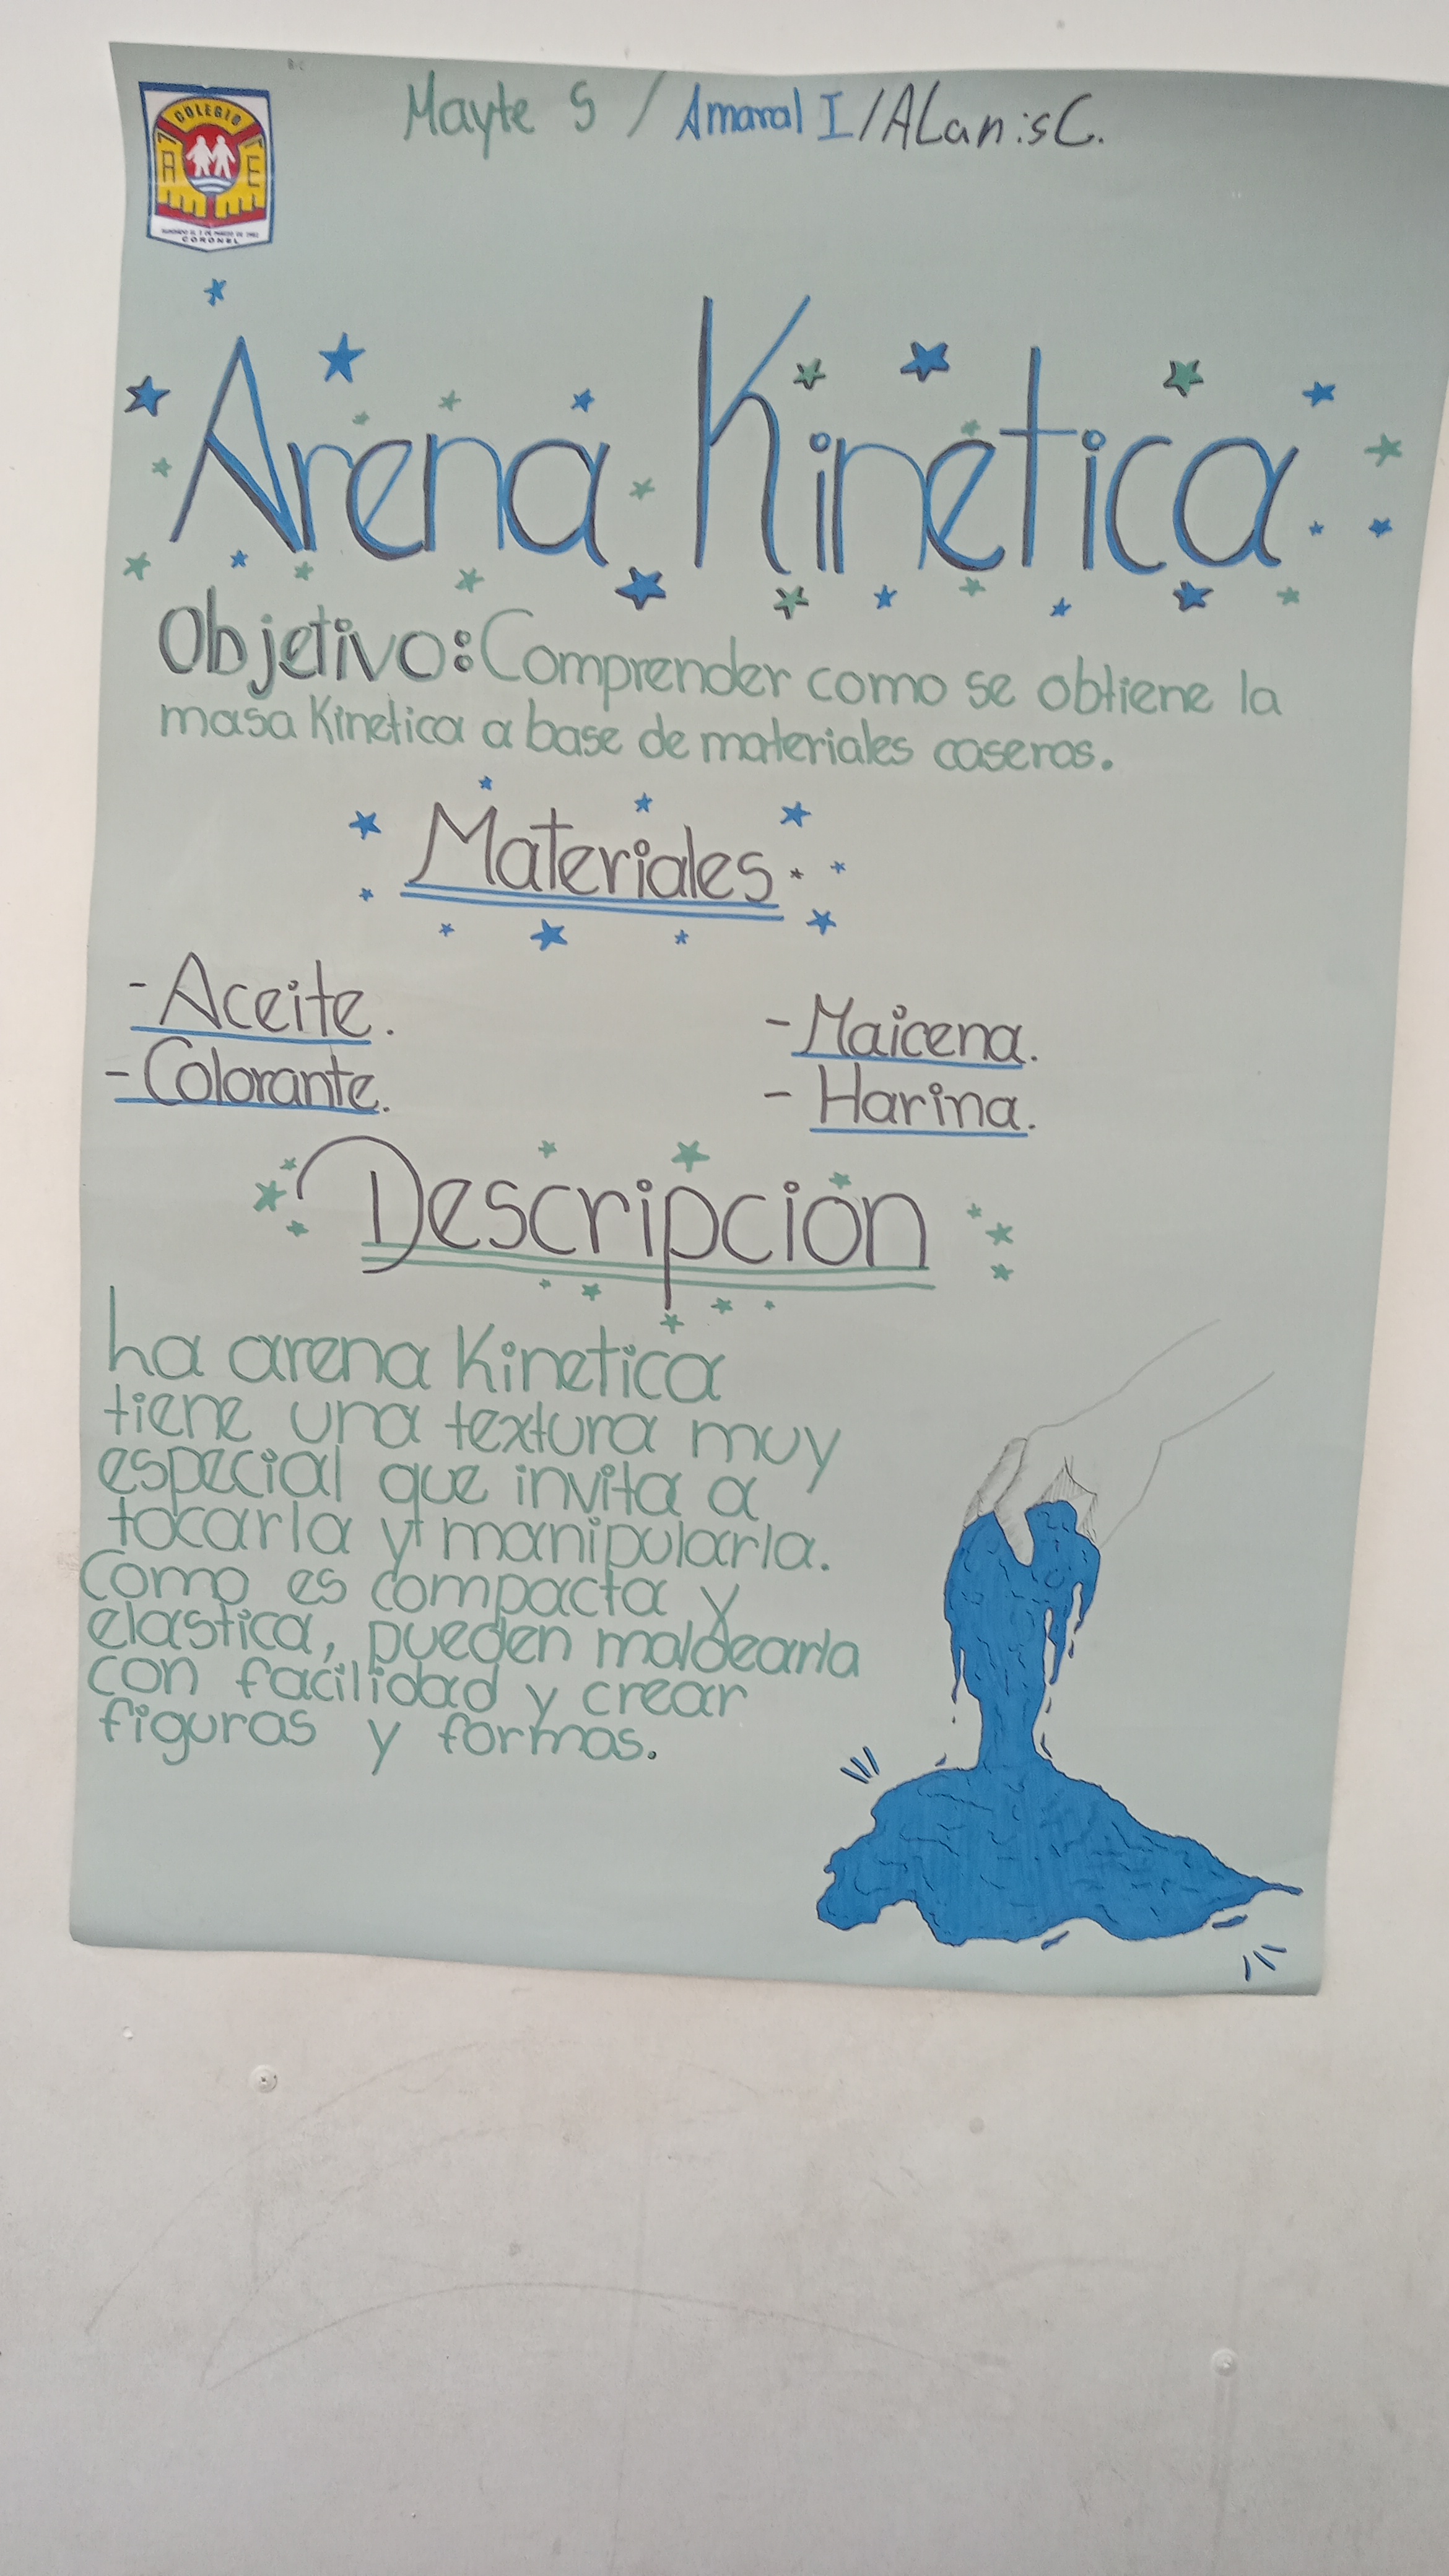 COLEGIO
A E
CORONEL
Mayte S / Amaral I / ALanis C.
Arena Kinetica
Objetivo: Comprender como se obtiene la
masa Kinetica a base de materiales caseros.
Materiales
- Aceite.
- Colorante.
- Maicena.
- Harina.
Descripción
La arena Kinetica
tiene una textura muy
especial que invita a
tocarla y manipularla.
Como es compacta y
elastica, pueden maldearla
con facilidad y crear
figuras y formas.